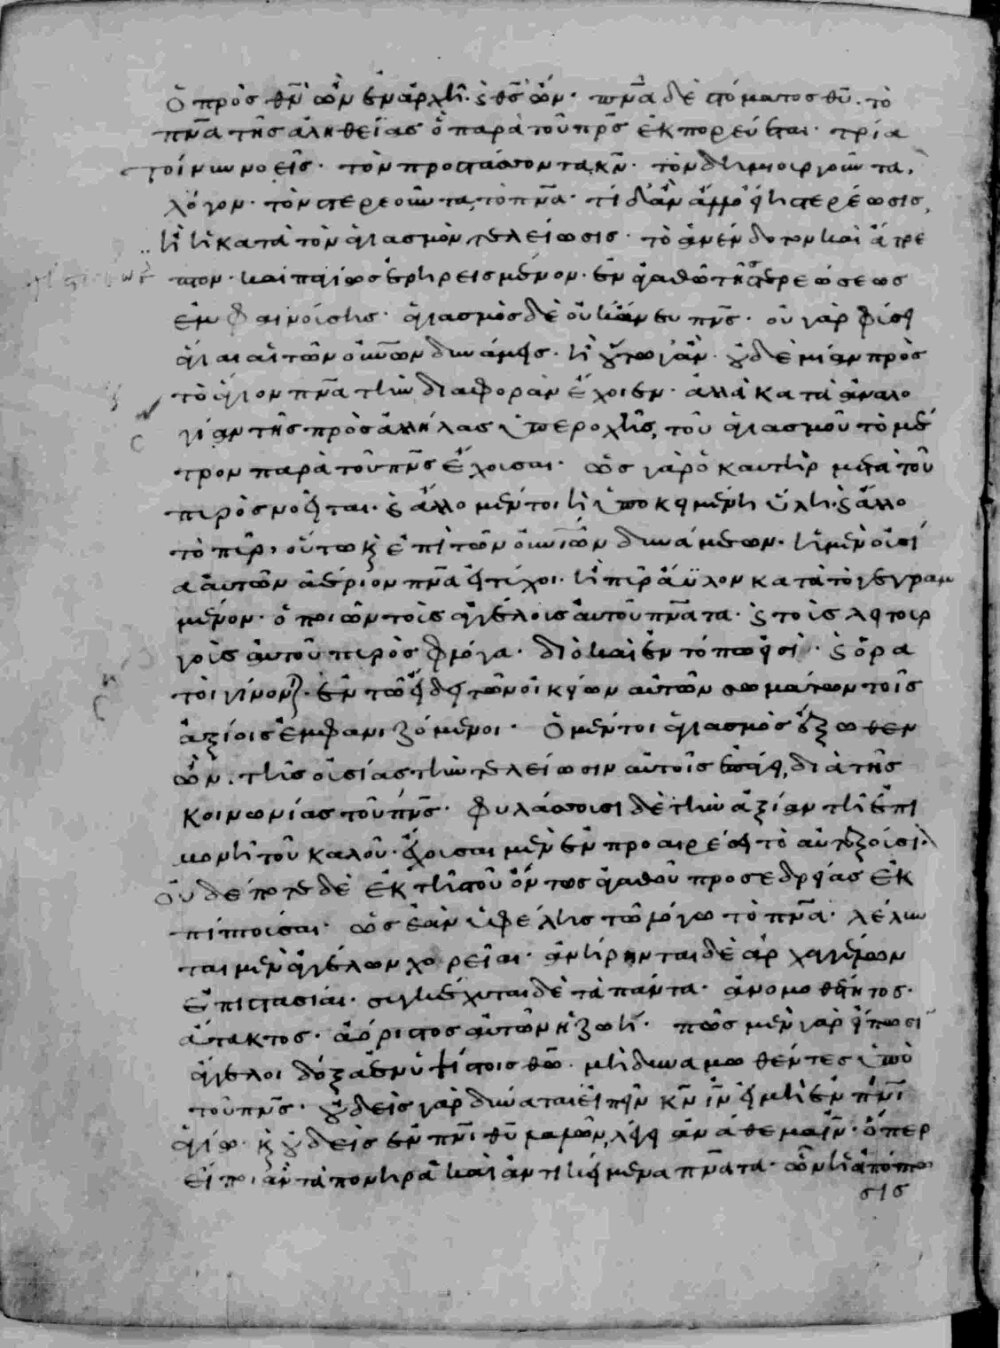 ὁ πρὸς θν̄ ὢν ἐν ἀρχῆ· ϗ θς̄ ὤν· πν̄α δὲ στόματος θῡ· τὸ
πν̄α τῆς ἀληθείας ὃ παρὰ τοῦ πρ̄ς ἐκπορεύεται· τρία
τοίνυν νοεῖς· τὸν προστάσσοντα κν̄· τὸν δημιουργοῦντα
λόγον· τὸν στερεοῦντα, τὸ πν̄α· τί δ' ἂν ἄλλο εἴη στερέωσις,
ἢ ἡ κατὰ τὸν ἁγιασμὸν τελείωσις· τὸ ἀνένδοτον καὶ ἄτρε
πτον· καὶ παγίως ἐρηρεισμένον ἐν ἀγαθῶ τῆς στερεώσεως
ἐμφαινούσης· ἁγιασμὸς δὲ οὐκ ἄνευ πν̄ς· οὐ γὰρ φύσει
ἅγιαι αἱ τῶν οὐνῶν δυνάμεις· ἢ οὕτω γ' ἂν οὐδεμίαν πρὸς
τὸ ἅγιον πν̄α τὴν διαφορὰν ἔχοιεν· ἀλλὰ κατὰ ἀναλο
γίαν τῆς πρὸς ἀλλήλας ὑπεροχῆς, τοῦ ἁγιασμοῦ τὸ μέ
τρον παρὰ τοῦ πν̄ς ἔχουσαι· ὡς γὰρ ὁ καυτὴρ μετὰ τοῦ
πυρὸς νοεῖται· ϗ ἄλλο μέντοι ἡ ὑποκειμένη ὕλη· ϗ ἄλλο
τὸ πῦρ, οὕτω ϗ ἐπὶ τῶν οὐνίων δυνάμεων· ἡ μὲν οὐσί
α αὐτῶν ἀέριον πν̄α εἰ τύχοι· ἢ πῦρ ἄϋλον κατὰ τὸ γεγραμ
μένον· ὁ ποιῶν τοὺς ἀγγέλους αὐτοῦ πν̄ατα· ϗ τοὺς λειτουρ
γοὺς αὐτοῦ πυρὸς φλόγα· διὸ καὶ ἐν τόπω εἰσὶ· ϗ ὁρα
τοὶ γίνονται· ἐν τῶ εἴδει τῶν οἰκείων αὐτῶν σωμάτων τοῖς
ἀξίοις ἐμφανιζόμενοι· ὁ μέντοι ἁγιασμὸς ἔξωθεν
ὢν τῆς οὐσίας τὴν τελείωσιν αὐτοῖς ἐπάγει, διὰ τῆς
κοινωνίας τοῦ πν̄ς· φυλάσσουσι δὲ τὴν ἀξίαν τῆ ἐπι
μονῆ τοῦ καλοῦ· ἔχουσαι μὲν ἐν προαιρέσει τὸ αὐτεξούσιον·
οὐδέποτε δὲ ἐκ τῆς τοῦ ὄντως ἀγαθοῦ προσεδρείας ἐκ
πίπτουσαι· ὡς ἐὰν ὑφέλης τῶ λόγω τὸ πν̄α· λέλυν
ται μὲν ἀγγέλων χορεῖαι· ἀνήρηνται δὲ ἀρχαγγέλων
ἐπιστασίαι· συγκέχυται δὲ τὰ πάντα· ἀνομοθέτητος·
ἄτακτος· ἀόριστος αὐτῶν ἡ ζωή· πῶς μὲν γὰρ εἴπωσιν
ἄγγελοι δόξα ἐν ὑψίστοις θω̄· μὴ δυναμωθέντες ὑπὸ
τοῦ πν̄ς· οὐδεὶς γὰρ δύναται εἰπεῖν κν̄ ιν̄ εἰ μὴ ἐν πν̄ι
ἁγίω· ϗ οὐδεὶς ἐν πν̄ι θῡ λαλῶν, λέγει ἀνάθεμα ιν̄· ὅπερ
εἴποι ἂν τὰ πονηρὰ καὶ ἀντικείμενα πν̄ατα· ὧν ἡ ἀπόπτω
σις